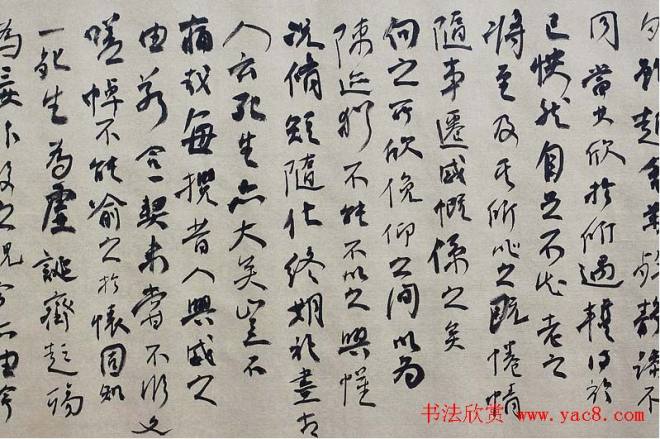 雖趣舍萬殊靜躁不
同當其欣於所遇輒得於
己快然自足不知老之
將至及其所之既惓情
隨事遷感慨係之矣
向之所欣俛仰之間以為
陳迹猶不能不以之興懷
況脩短隨化終期於盡古
人云死生亦大矣豈不
痛哉每攬昔人興感之
由若合一契未嘗不臨文
嗟悼不能喻之於懷固知
一死生為虛誕齊彭殤
為妄作後之視今亦由今
书法欣赏 www.yac8.com